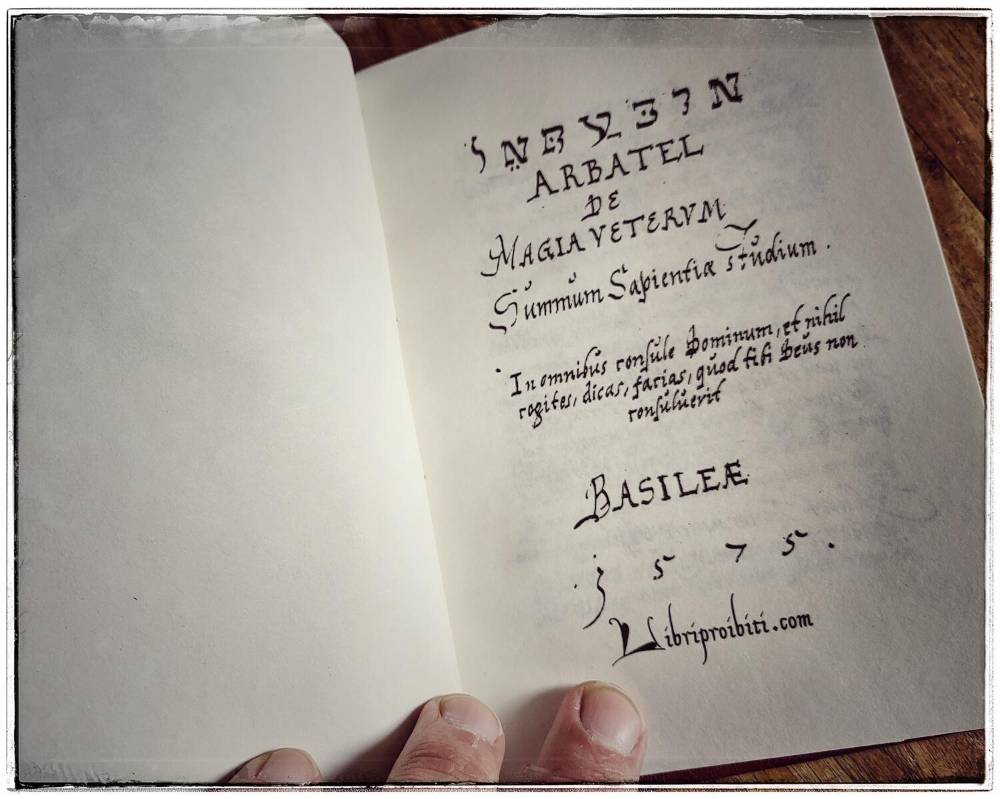 ARBATEL
DE
MAGIA VETERVM
Summum Sapientiæ studium.
In omnibus consule Dominum, et nihil
cogites, dicas, facias, quod tibi Deus non
consuluerit
BASILEÆ
j 5 7 5.
Libriproibiti.com